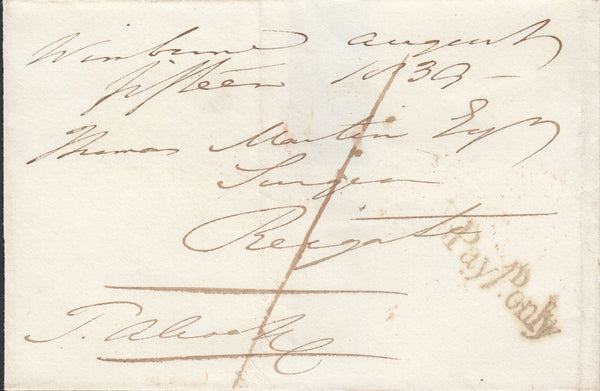 Wimborne August
fifteen 1839 -
Thomas Martin Esqr
Surgeon
Reigate
Pay 1d. only